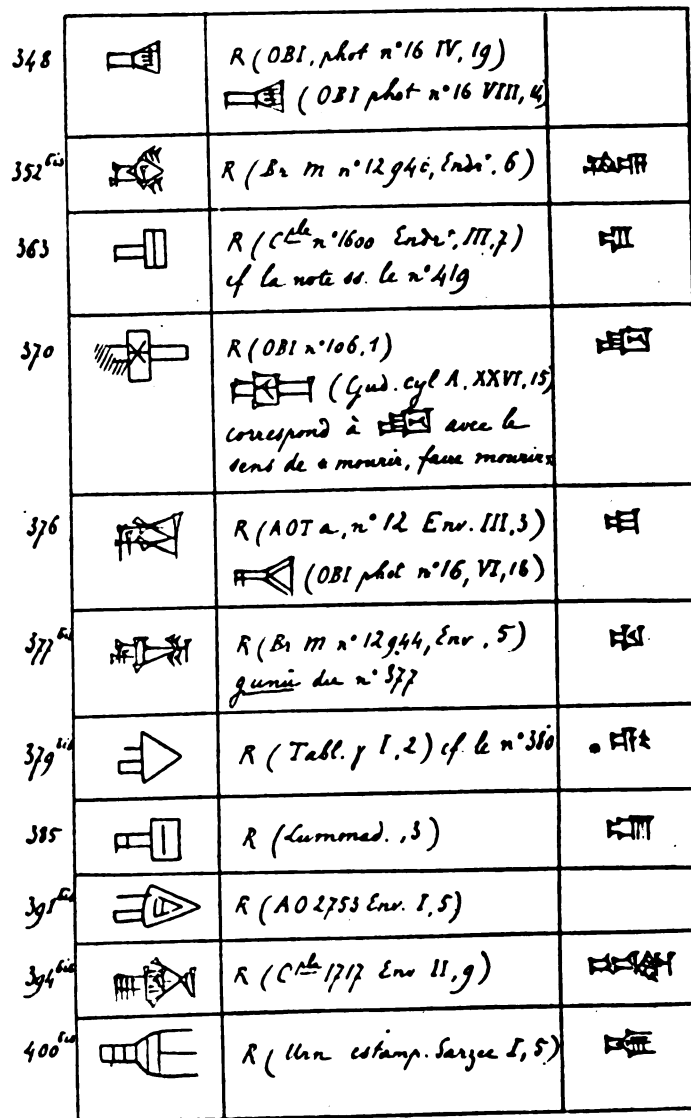 348 R (OBI, phot n°16 IV, 19)
(OBI phot n°16 VIII, 4)
352 bis R (Br m n°1294i, Endr., 6)
363 R (Cple n°1600 Endr., III, 7)
cf la note ss. le n°419
370 R (OBI n°106, 1)
(Gud. cyl A, XXVI, 15)
correspond à avec le
sens de « mourir, faire mourir »
376 R (AOTa, n°12 Env. III, 3)
(OBI phot n°16, VI, 16)
377 bis R (Br m n°12944, Env, 5)
gunû du n°377
379 bis R (Tabl. y I, 2) cf. le n°380
385 R (Lummad., 3)
391 bis R (AO 2753 Env. I, 5)
394 bis R (Cple 1717 Env II, 9)
400 bis R (Urn estamp. Sarzec I, 5)